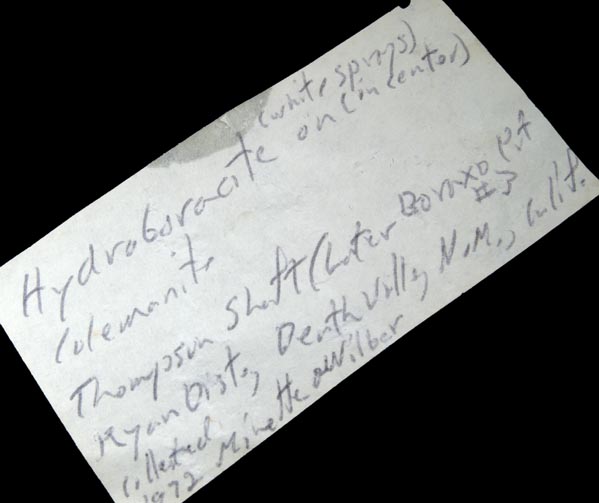 (white sprays)
Hydroboracite on (in center)
Colemanite
Thompson Shaft (later Boraxo Pit
#3
Ryan Dist., Death Valley N.M., Calif.
Collected
1972 Minette & Wilber